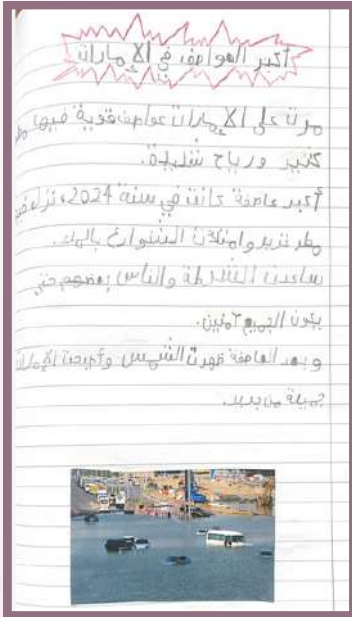 أكبر العواصف في الإمارات
مرت على الإمارات عواصف قوية فيها مطر
كثير ورياح شديدة.
أكبر عاصفة كانت في سنة 2024، نزل فيها
مطر غزير وامتلأت الشوارع بالماء.
ساعدت الشرطة والناس بعضهم حتى
يكون الجميع آمنين.
وبعد العاصفة ظهرت الشمس وأصبحت الإمارات
جميلة من جديد.